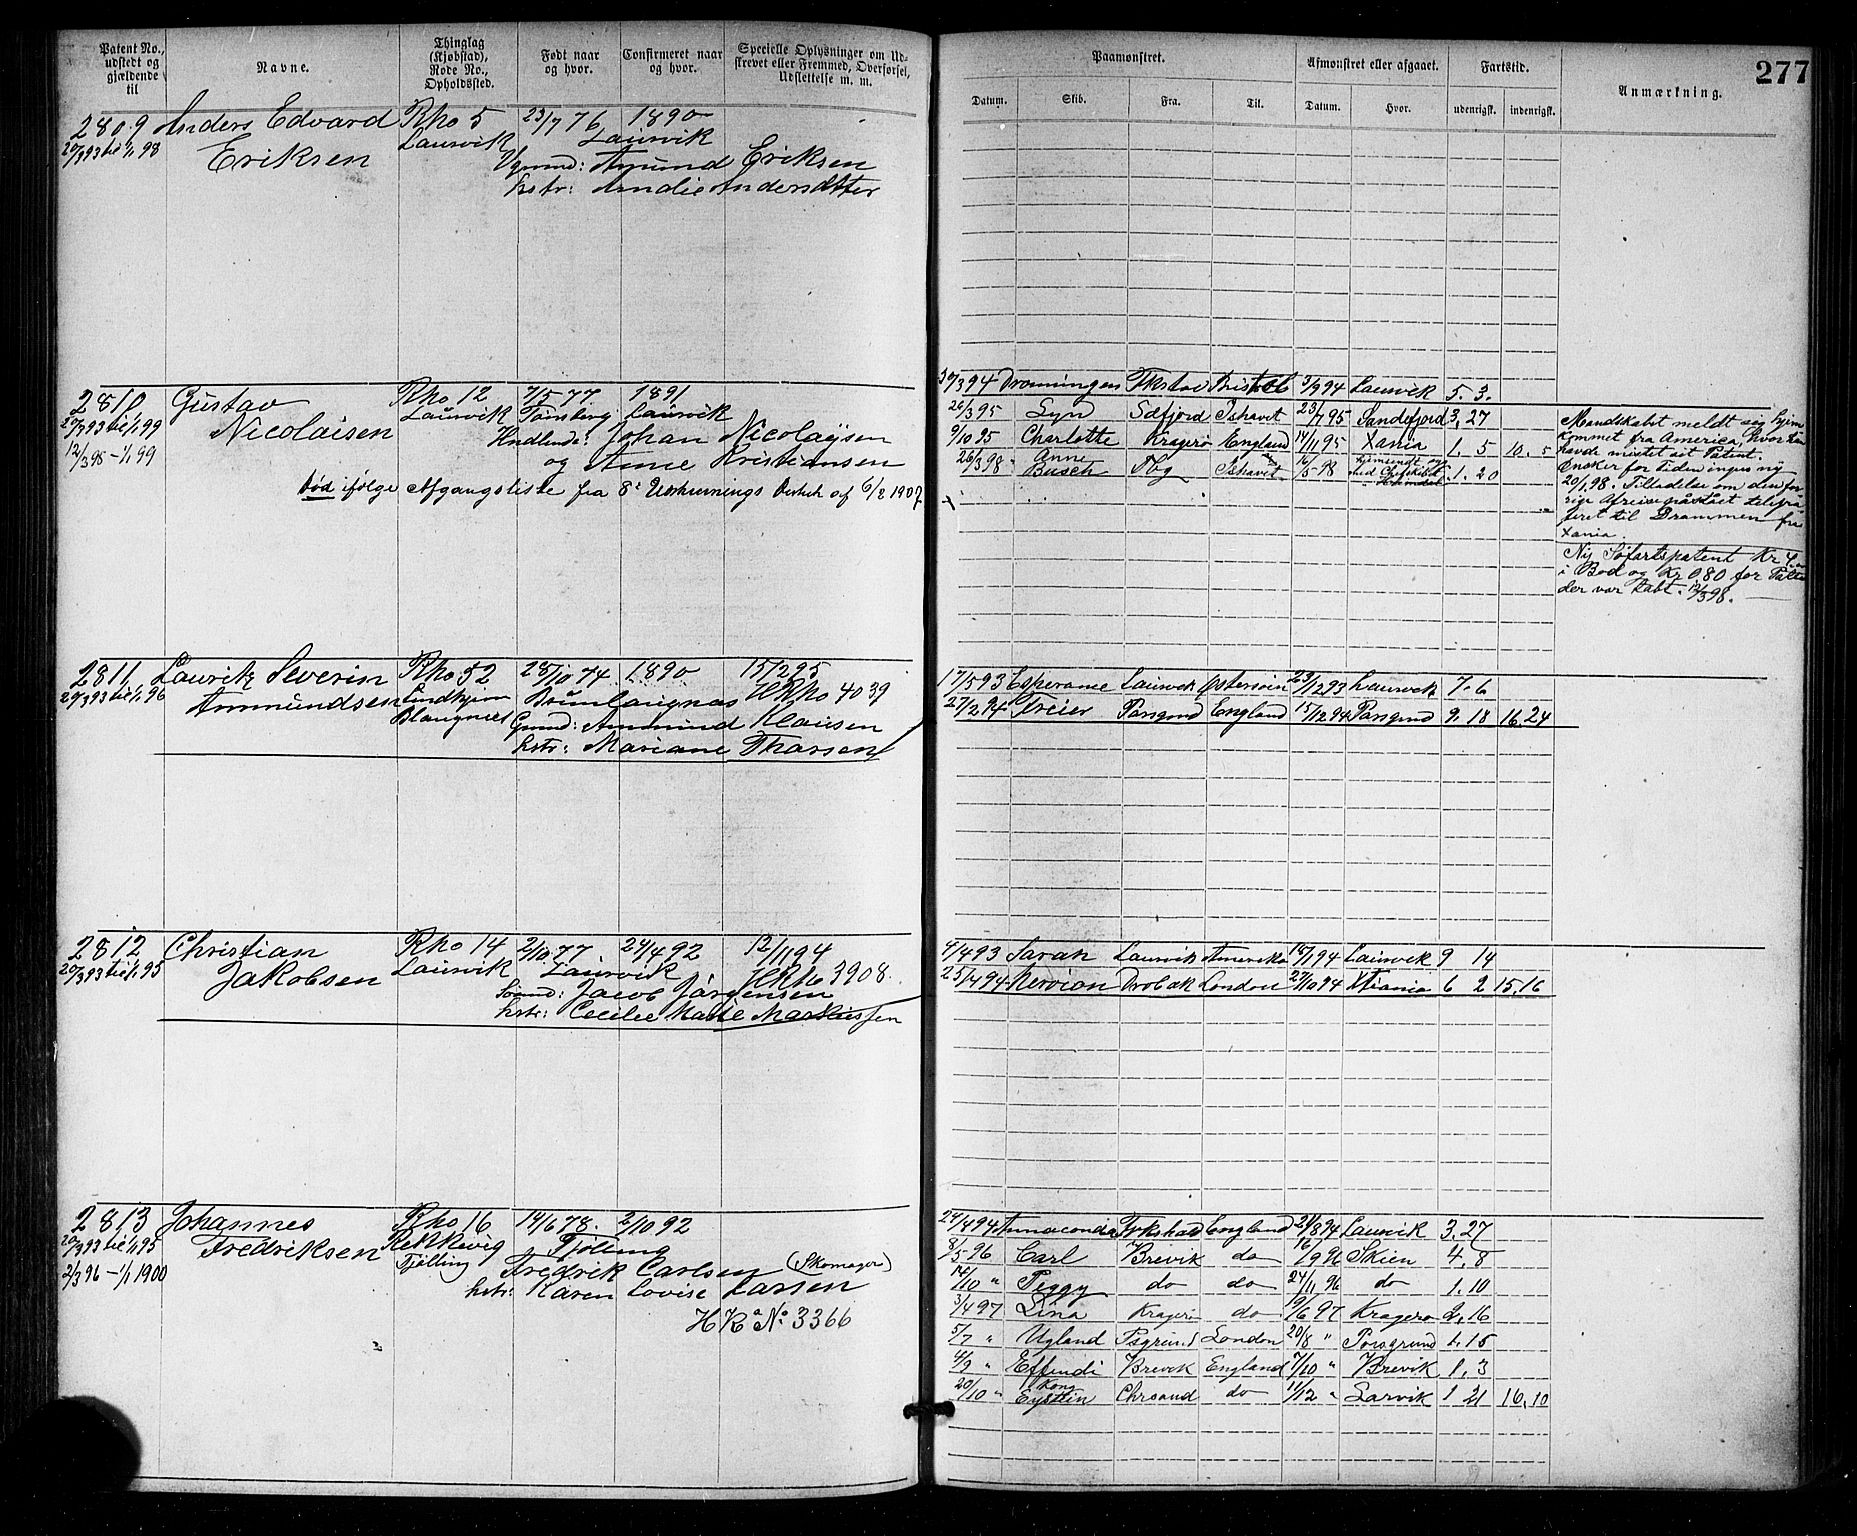 Patent No., udstedt og gjældende til
Navne.
Thinglag (Kjøbstad), Rode No., Opholdssted.
Født naar og hvor.
Confirmeret naar og hvor.
Specielle Oplysninger om Udskrevet eller Fremmed, Overførsel, Udslettelse m. m.
Paamønstret.
Afmønstret eller afgaaet.
Fartstid.
Anmærkning.
277
Datum. Skib. Fra. Til. Datum. Hvor. udenrigsk. indenrigsk.
2809 Anders Edvard Rho 5 23/7 76 1890
20/3 93 til 1/1 98 Eriksen Laurvik Laurvik
Amund Eriksen
hstr: Amalie Andersdtter
2810 Gustav Rho 12 7/5 77 1891
20/3 93 til 1/1 99 Nicolaisen Laurvik Tønsberg Laurvik
12/3 98 - 1/1 99 Johan Nicolaysen
og Anne Kristiansen
Død ifølge Afgangsliste fra 8de Udskrivnings Distrikt af 6/2 1907
30/3 94 Dronningen Fkstad Bristol 3/9 94 Laurvik 5. 3.
26/3 95 Lyn Sdfjord Ishavet 23/7 95 Sandefjord 3, 27
9/10 95 Charlotte Kragerø England 14/11 95 Xania 1. 5 10. 5
26/3 98 Anne Busch Tbg Ishavet 16/5 98 1. 20
Mandskabet meldt sig hjem
kommet fra America, hvor han
havde mistet sit Patent.
Ønsker for tiden ingen ny
20/1 98. Tilladelse om den for
rige Afreise
feret til Drammen fra
Xania.
Ny Søfartspatent Kr
i Bod og Kr 0,80 for
der var tabt. 12/3 98.
2811 Laurits Severin Rho 52 28/10 74 1890 15/2 95
20/3 93 til 1/1 96 Ammundsen Lindhjem Brunlangnæs HRho 4039
Blangnæs Gmnd: Ammund Klausen
hstr: Mariane Tharsen
17/5 93 Esperance Laurvik Østersøen 23/12 93 Laurvik 7. 6
27/2 94 Freier Porsgrnd England 15/12 94 Porsgrnd 9. 18 16, 24
2812 Christian Rho 14 2/10 77 24/4 92 12/11 94
20/3 93 til 1/1 95 Jakobsen Laurvik Laurvik HRho 3908.
Sømnd: Jacob Jørgensen
hstr: Cecilie Marie Markussen
4/4 93 Sarah Laurvik Amerika 18/1 94 Laurvik 9 14
25/4 94 Drobak London 27/10 94 Xtiania 6 2 15, 16
2813 Johannes Rho 16 14/6 78. 2/10 92
20/3 93 til 1/1 95 Fredriksen Rekkevig Fjølling
2/3 96 - 1/1 1900 Tjølling Fredrik Carlsen (Skomager)
hstr: Karen Lovise Larsen
HR No 3366
24/4 94 Annaconda Frkshald England 21/8 94 Laurvik 3, 27
8/5 96 Carl Brevik do 16/9 96 Skien 4. 8
14/10 " Peggy do do 24/11 96 do 1. 10
3/4 97 Lina Kragerø do 19/6 97 Kragerø 2, 16
5/7 " Ugland Psgrund London 20/8 " Porsgrund 1. 15
4/9 " Effendi Brevik England 7/10 " Brevik 1. 3
20/10 " Kong Eystein Chrsand do 11/12 " Larvik 1 21 16, 10